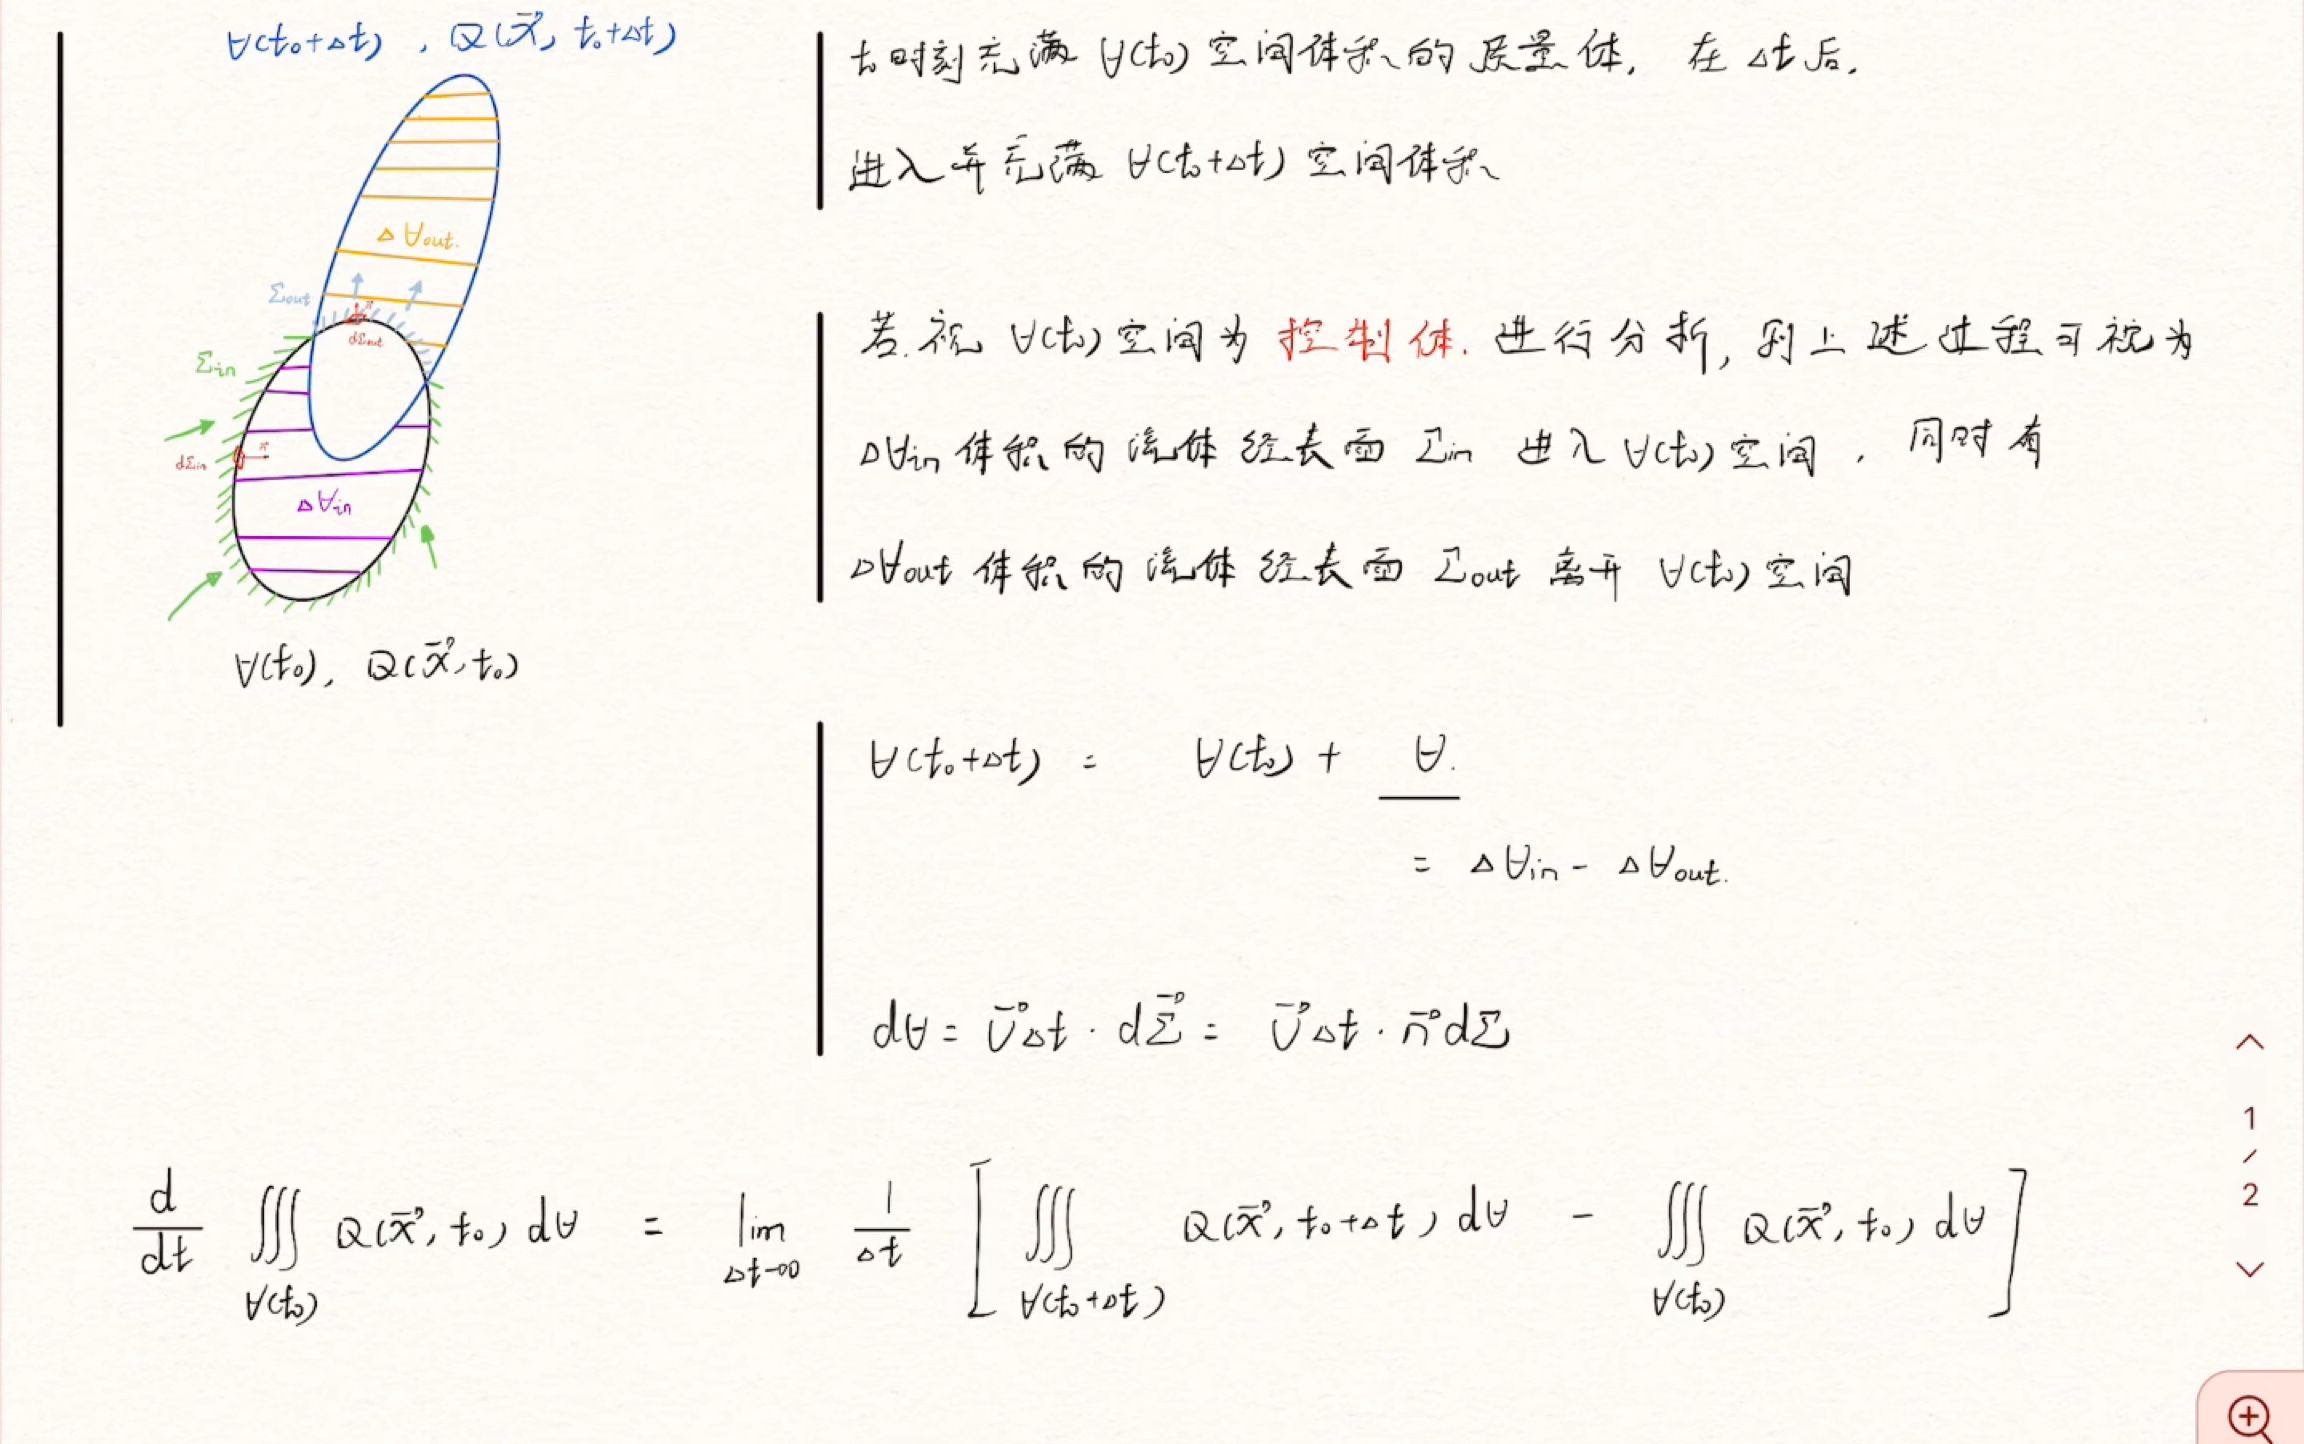 ∀(t₀+Δt), Q(x⃗, t₀+Δt)
ΔVout.
Σout
n⃗
dΣout
Σin
n⃗
dΣin
ΔVin
∀(t₀), Q(x⃗, t₀)
t₀时刻充满 ∀(t₀) 空间体积的质量体, 在 Δt后,
进入并充满 ∀(t₀+Δt) 空间体积
若视 ∀(t₀) 空间为 控制体. 进行分析, 则上述过程可视为
Δ∀in 体积的流体经表面 Σin 进入 ∀(t₀) 空间, 同时有
Δ∀out 体积的流体经表面 Σout 离开 ∀(t₀) 空间
∀(t₀+Δt) = ∀(t₀) + ∀.
= Δ∀in - Δ∀out.
d∀ = U⃗Δt · dΣ⃗ = U⃗Δt · n⃗dΣ
d/dt ∭_{∀(t₀)} Q(x⃗, t₀) d∀ = lim_{Δt→0} 1/Δt [ ∭_{∀(t₀+Δt)} Q(x⃗, t₀+Δt) d∀ - ∭_{∀(t₀)} Q(x⃗, t₀) d∀ ]
1
/
2